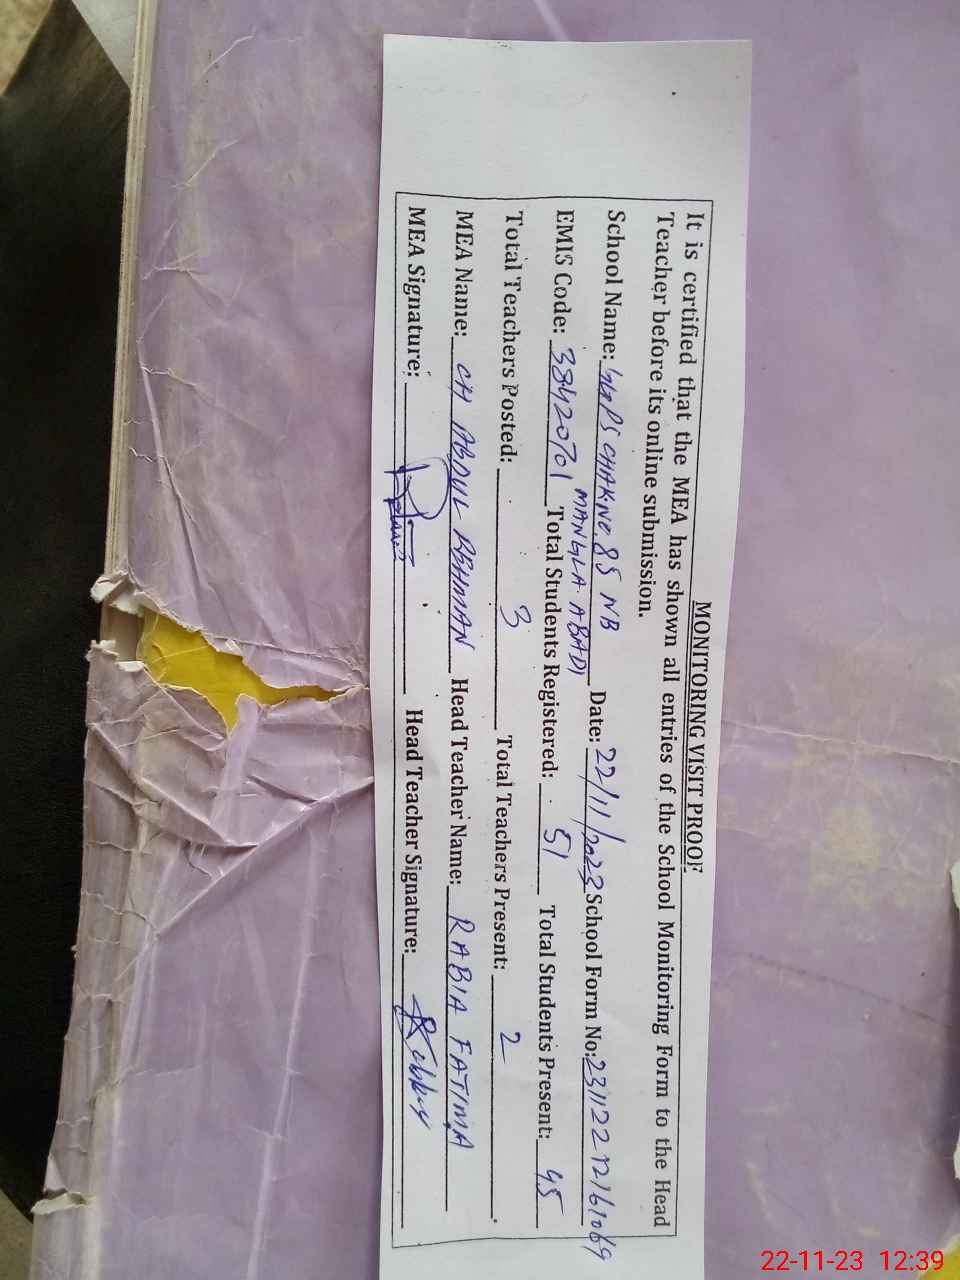 MONITORING VISIT PROOF
It is certified that the MEA has shown all entries of the School Monitoring Form to the Head
Teacher before its online submission.
School Name: GGPS CHAK NO. 85 NB Date: 22/11/2023 School Form No: 231122 12161069
MANGLA ABADI
EMIS Code: 38420701 Total Students Registered: 51 Total Students Present: 45
Total Teachers Posted: 3 Total Teachers Present: 2
MEA Name: CH ABDUL REHMAN Head Teacher Name: RABIA FATIMA
MEA Signature: Head Teacher Signature:
22-11-23 12:39